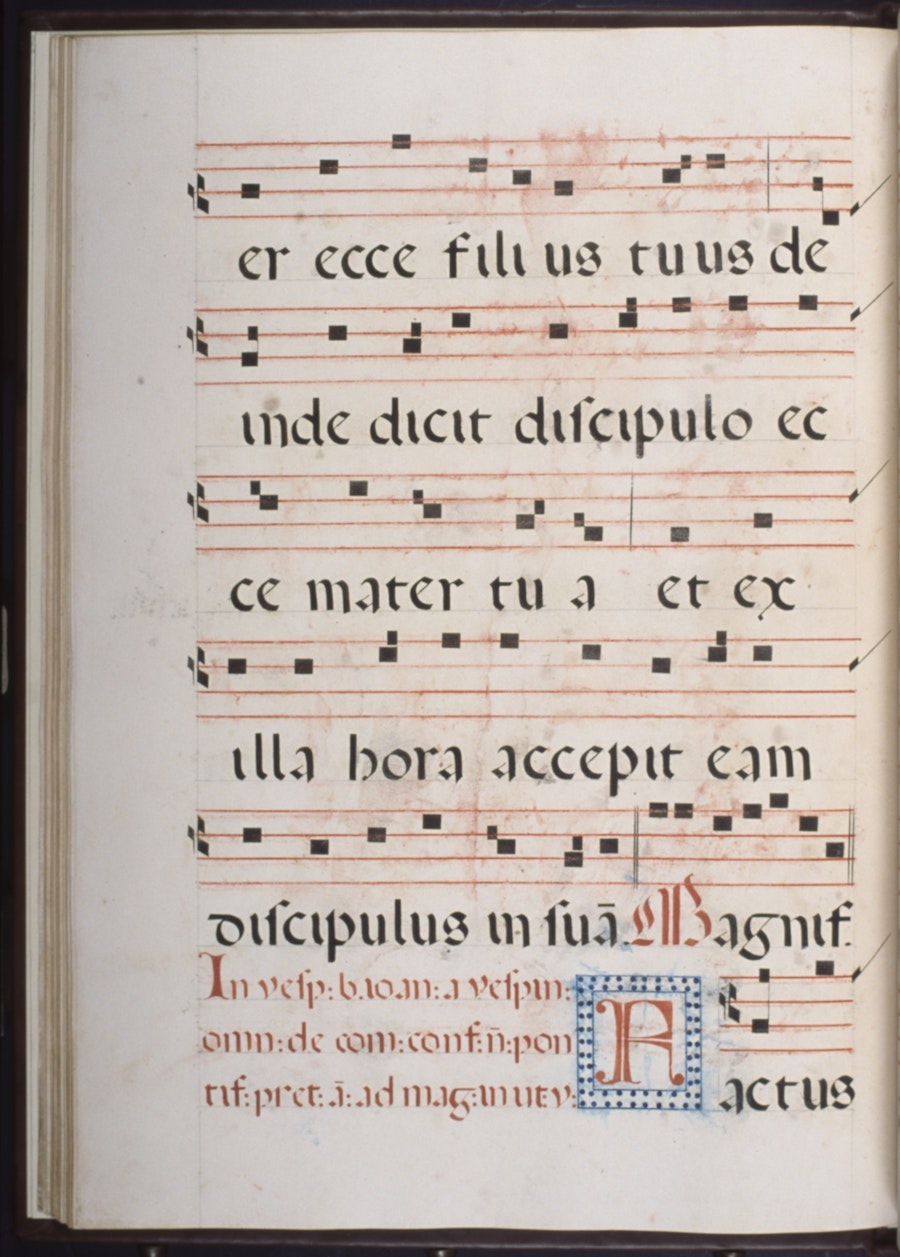 er ecce filius tuus de
inde dicit discipulo ec
ce mater tua et ex
illa hora accepit eam
discipulus in suā. Magnif.
In vesp: b. ioan: a vesp in:
omn: de com: conf: n̄: pon
tif: pret: ā: ad mag: in ut: v:
Factus